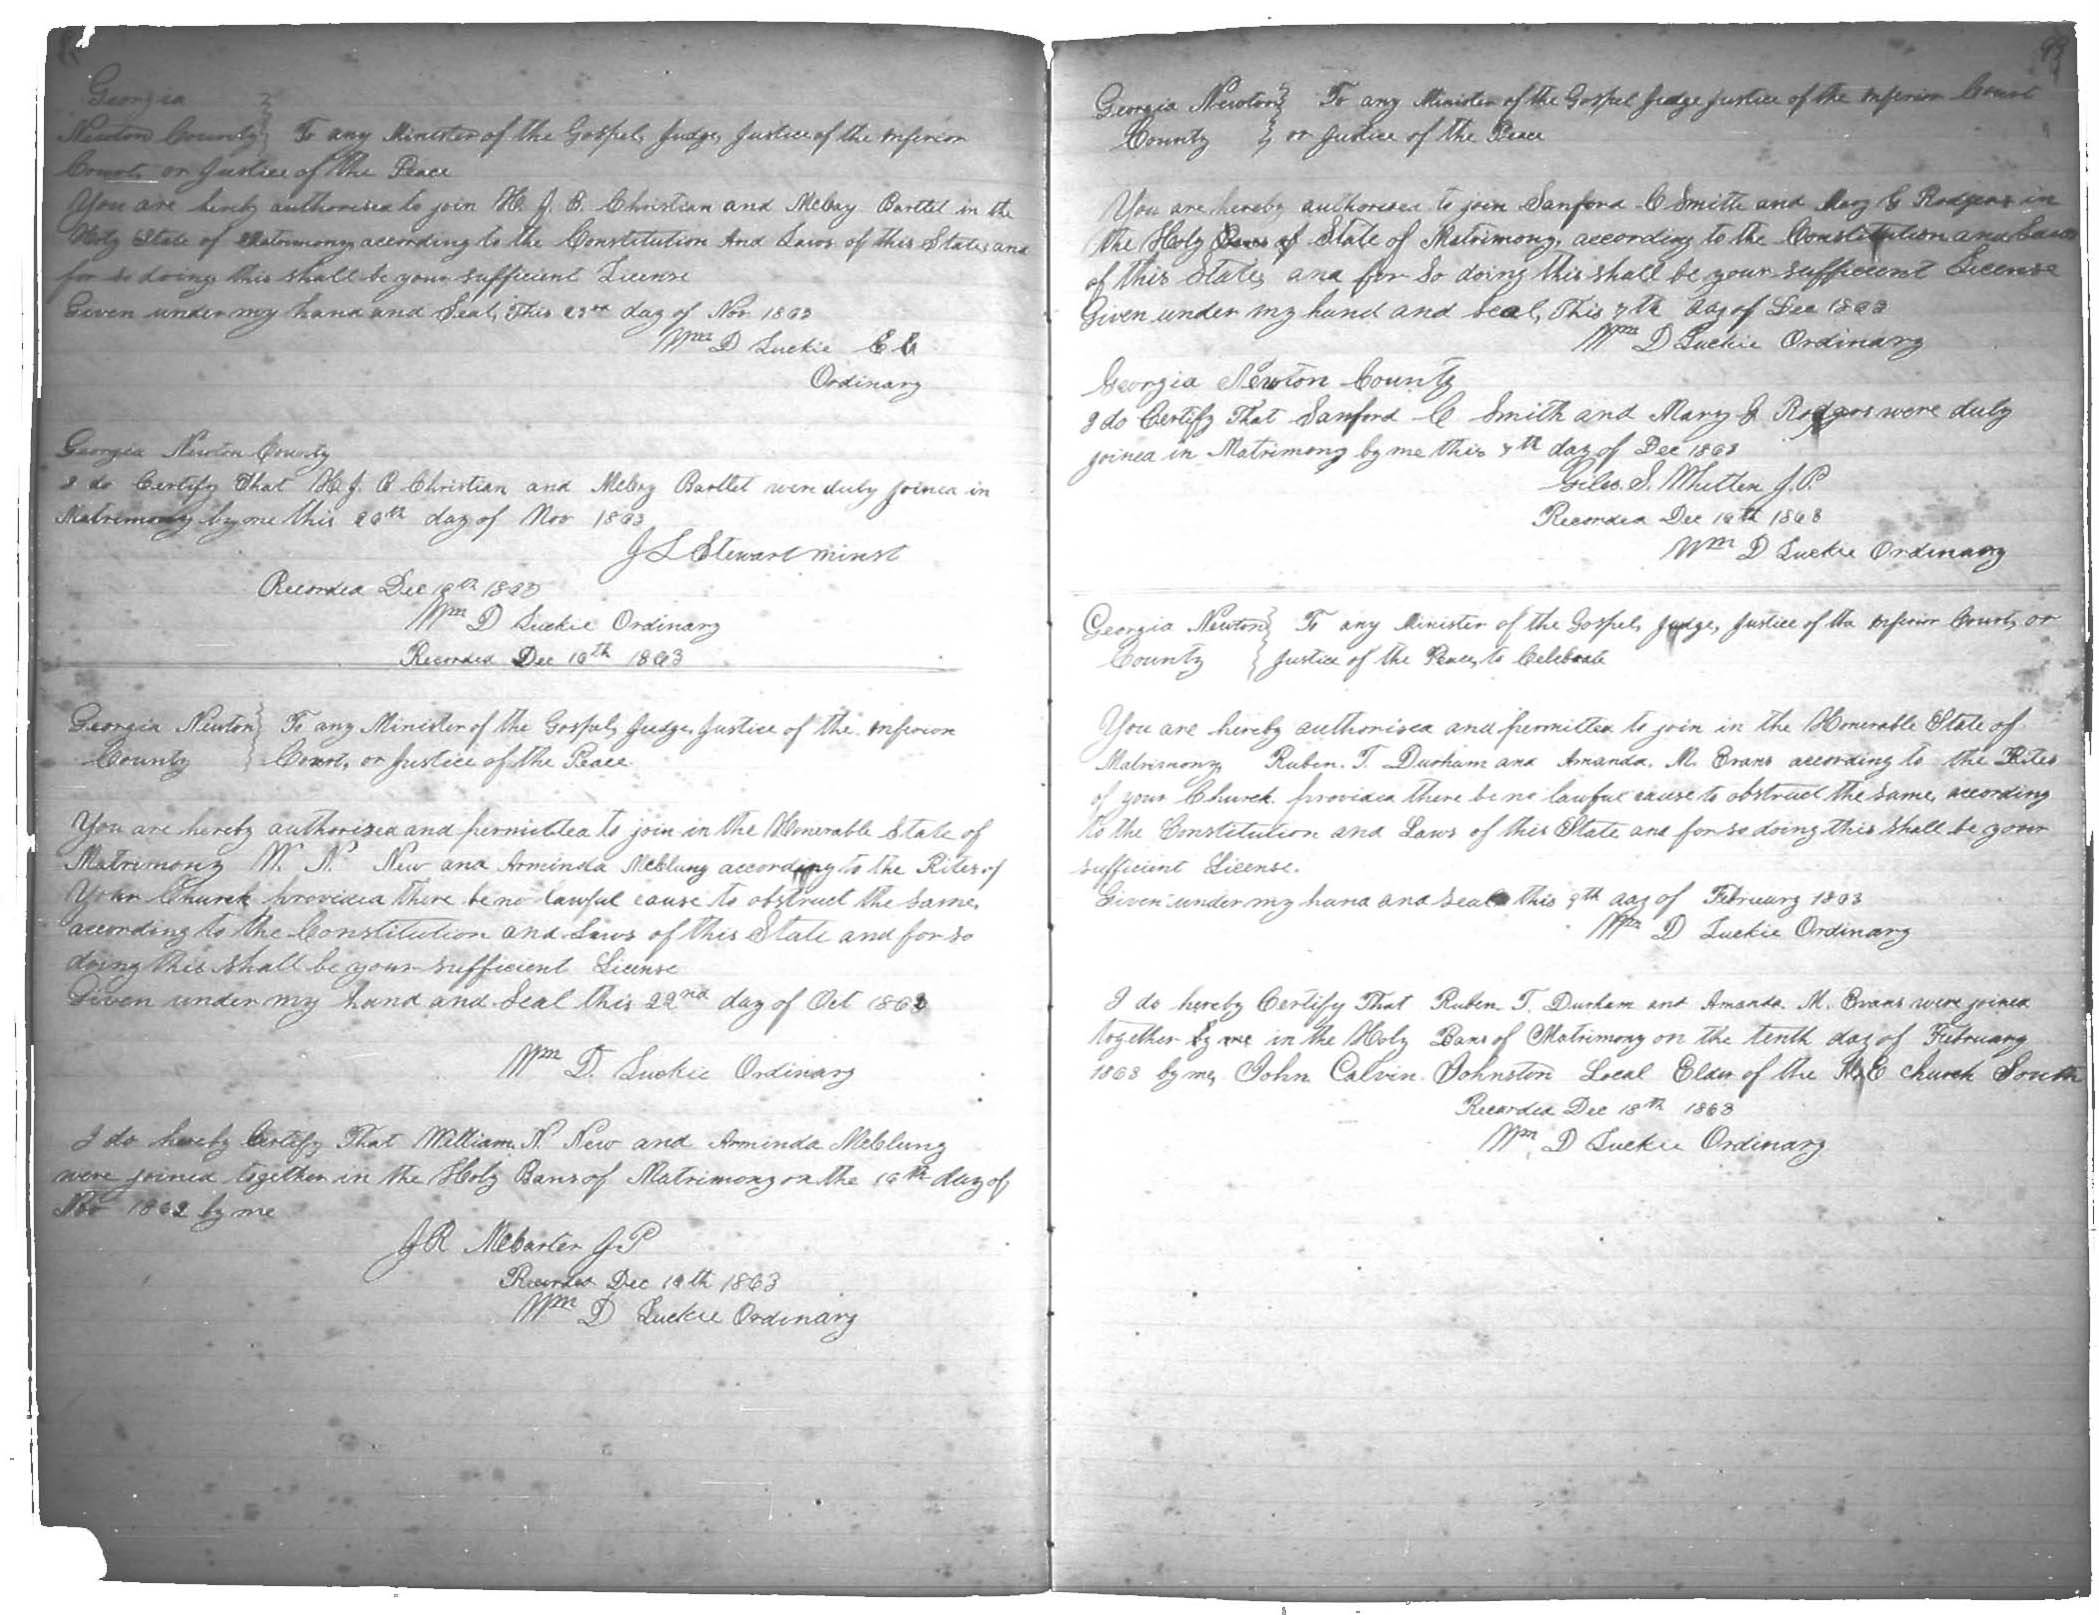 Georgia
Newton County } To any Minister of the Gospel, Judge, Justice of the Inferior
Court, or Justice of the Peace
You are hereby authorised to join H. J. B. Christian and McCay Bartlet in the
Holy State of Matrimony according to the Constitution And Laws of this State, and
for so doing this shall be your sufficient License
Given under my hand and Seal, This 23rd day of Nov 1863
Wm D Luckie
Ordinary
Georgia Newton County
I do Certify That H. J. B Christian and McCay Bartlet were duly joined in
Matrimony by me this 26th day of Nov 1863
J L Stewart minst
Recorded Dec 18th 1863
Wm D Luckie Ordinary
Recorded Dec 18th 1863
Georgia Newton } To any Minister of the Gospel, Judge, Justice of the Inferior
County } Court, or Justice of the Peace
You are hereby authorised and permitted to join in the Honerable State of
Matrimony W. N. New and Arminda McClung according to the Rites of
Your Church provided there be no lawful cause to obstruct the same,
according to the Constitution and Laws of this State and for so
doing this shall be your sufficient License
Given under my hand and Seal this 22nd day of Oct 1862
Wm D. Luckie Ordinary
I do hereby Certify That William N. New and Arminda McClung
were joined together in the Holy Bans of Matrimony on the 16th day of
Nov 1862 by me
J R McCarter J P
Recorded Dec 18th 1863
Wm D Luckie Ordinary
Georgia Newton } To any Minister of the Gospel Judge Justice of the Inferior Court
County } or Justice of the Peace
You are hereby authorised to join Sanford C Smith and Mary G Rodgers in
the Holy State of Matrimony, according to the Constitution and Laws
of this State, and for So doing this shall be your sufficient License
Given under my hand and seal, This 7th day of Dec 1863
Wm D Luckie Ordinary
Georgia Newton County
I do Certify That Sanford C Smith and Mary G Rodgers were duly
joined in Matrimony by me this 7th day of Dec 1863
Giles. S. Whitten J. P.
Recorded Dec 18th 1863
Wm D Luckie Ordinary
Georgia Newton } To any Minister of the Gospel, Judge, Justice of the Inferior Court, or
County } Justice of the Peace, to Celebrate
You are hereby authorised and permitted to join in the Honerable State of
Matrimony, Ruben. T. Durham and Amanda. M. Evans according to the Rites
of your Church. provided there be no lawful cause to obstruct the same, according
to the Constitution and Laws of this State and for so doing this shall be your
sufficient License.
Given under my hand and seal this 9th day of Febriuary 1863
Wm D Luckie Ordinary
I do hereby Certify That Ruben. T. Durham and Amanda. M. Evans were joined
together by me in the Holy Bans of Matrimony on the tenth day of February
1863 by me, John. Calvin. Johnston Local Elder of the M. E church South
Recorded Dec 18th 1863
Wm D Luckie Ordinary